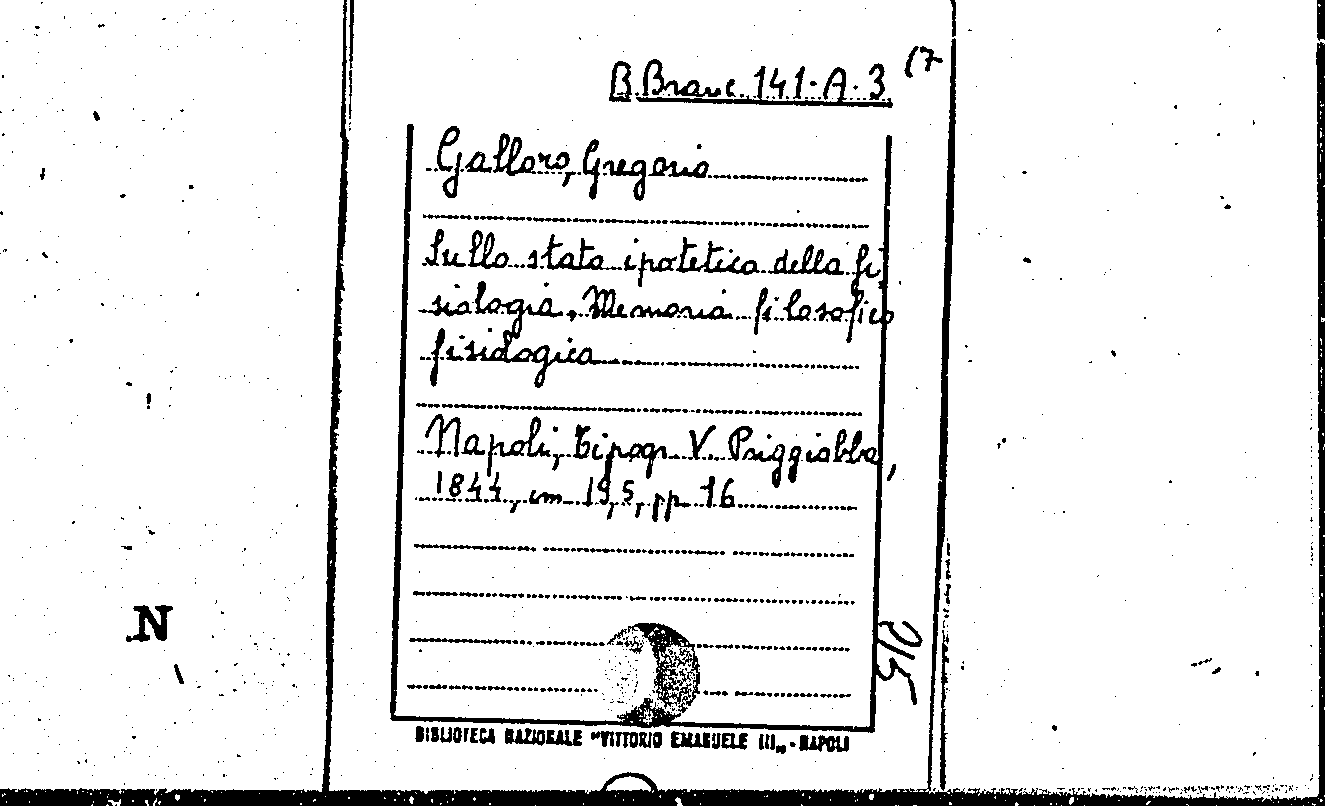 B. Branc. 141-A-3 (7
Galloro, Gregorio
Sullo stato ipotetico della fi
siologia, Memoria filosofico
fisiologica
Napoli, Tipogr. V. Priggiobba,
1844, cm 19,5, pp 16
N
BIBLIOTECA NAZIONALE "VITTORIO EMANUELE III„ - NAPOLI